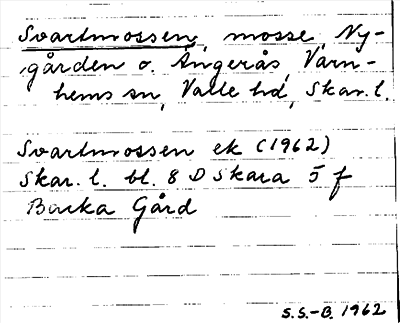 Svartmossen, mosse, Ny-
gården o. Ängerås, Varn-
hems sn, Valle hd, Skar. l.
Svartmossen ek (1962)
Skar. l. bl. 8 D Skara 5 f
Backa Gård
S.S.-B. 1962